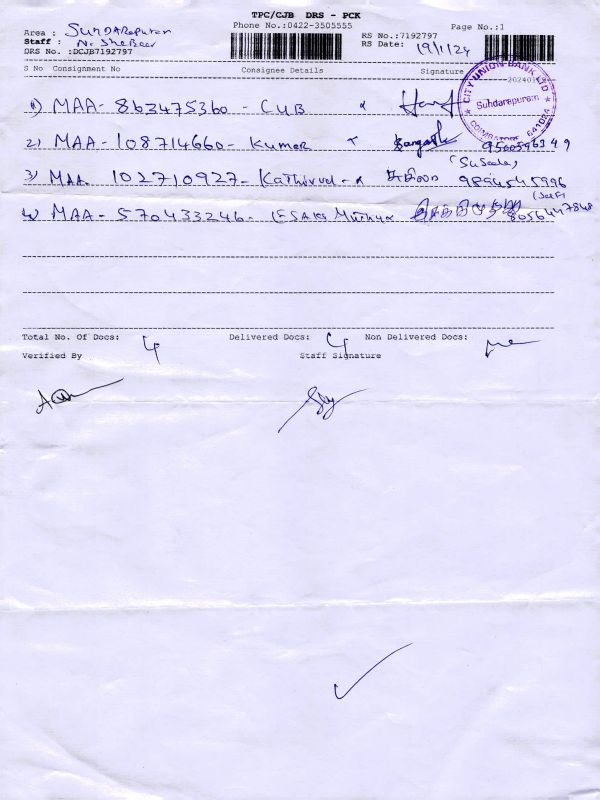 TPC/CJB DRS - PCK
Phone No.:0422-3505555 Page No.:1
Area : SundaraPuram
Staff : RS No.:7192797
DRS No. :DCJB7192797 RS Date: 19/1/24
S No Consignment No Consignee Details Signature
CITY UNION BANK LTD
Suhdarapuram
COIMBATORE 641024
1) MAA - 863475360 - CUB
2) MAA - 108714660 - Kumar
(Susela)
3) MAA. 102710927 - Kathirvel - சுசிலா 9894545996
(Self)
4) MAA - 570433246 - ESAKI Muthu 8056447848
Total No. Of Docs: 4 Delivered Docs: 4 Non Delivered Docs:
Verified By Staff Signature